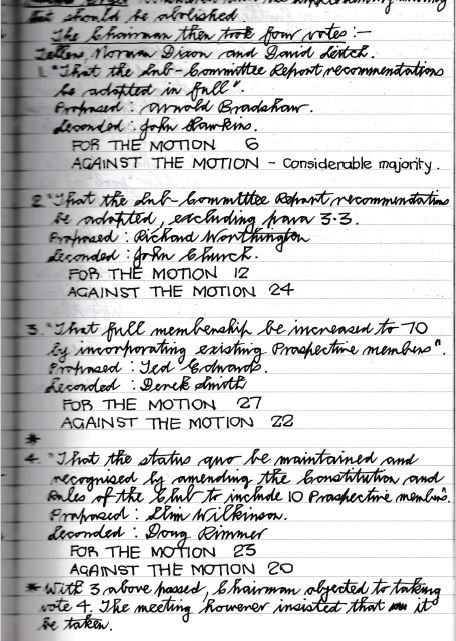 that should be abolished.
The Chairman then took four votes :-
Tellers, Norman Dixon and David Leitch.
1. "That the Sub-Committee Report recommendations
be adopted in full".
Proposed : Arnold Bradshaw.
Seconded : John Hawkins.
FOR THE MOTION 6
AGAINST THE MOTION - Considerable majority.
2 "That the Sub-Committee Report recommendations
be adopted, excluding para 3.3.
Proposed : Richard Worthington
Seconded : John Church.
FOR THE MOTION 12
AGAINST THE MOTION 24
3. "That full membership be increased to 70
by incorporating existing Prospective members".
Proposed : Ted Edwards.
Seconded : Derek Smith
FOR THE MOTION 27
AGAINST THE MOTION 22
*
4. "That the status quo be maintained and
recognised by amending the Constitution and
Rules of the Club to include 10 Prospective members".
Proposed : Slim Wilkinson.
Seconded : Doug Rimmer
FOR THE MOTION 23
AGAINST THE MOTION 20
* With 3 above passed, Chairman objected to taking
vote 4. The meeting however insisted that it
be taken.